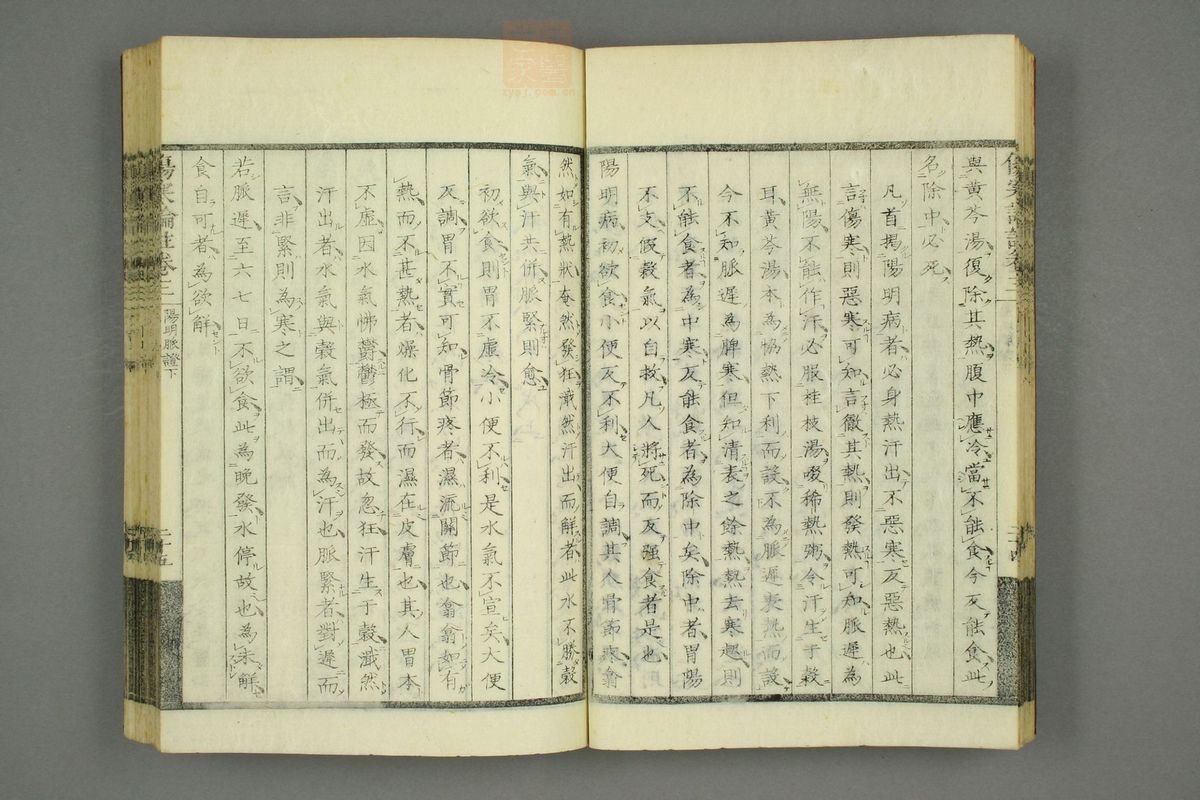 與黃芩湯復除其熱腹中應冷當不能食今反能食此
名除中必死
凡首揭陽明病者必身熱汗出不惡寒反惡熱也此
言傷寒則惡寒可知言徹其熱則發熱可知脈遲為
無陽不能作汗必服桂枝湯啜稀熱粥令汗生于穀
耳黃芩湯本為協熱下利而設不為脈遲表熱而設
今不知脈遲為脾寒但知清表之餘熱熱去寒起則
不能食者為中寒反能食者為除中矣除中者胃陽
不支假穀氣以自救凡人將死而反强食者是也
陽明病初欲食小便反不利大便自調其人骨節疼翕
然如有熱狀奄然發狂濈然汗出而解者此水不勝穀
氣與汗共併脈緊則愈
初欲食則胃不虛冷小便不利是水氣不宣矣大便
反調胃不實可知骨節疼者濕流關節也翕翕如有
熱而不甚熱者燥化不行而濕在皮膚也其人胃本
不虛因水氣怫鬱鬱極而發故忽狂汗生于穀濈然
汗出者水氣與穀氣併出而為汗也脈緊者對遲而
言非緊則為寒之謂
若脈遲至六七日不欲食此為晚發水停故也為未解
食自可者為欲解
傷寒論註卷三
陽明脈證下
二十五